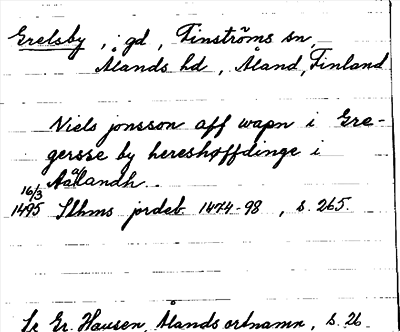 Grelsby, gd, Finströms sn,
Ålands hd, Åland, Finland
Niels jonsson aff wapn i Gre-
gersse by hereshøffdinge i
Aålandh.
16/3
1495 Sthms jordeb. 1474-98, s. 265.
Se Gr. Hausen, Ålands ortnamn, s. 26